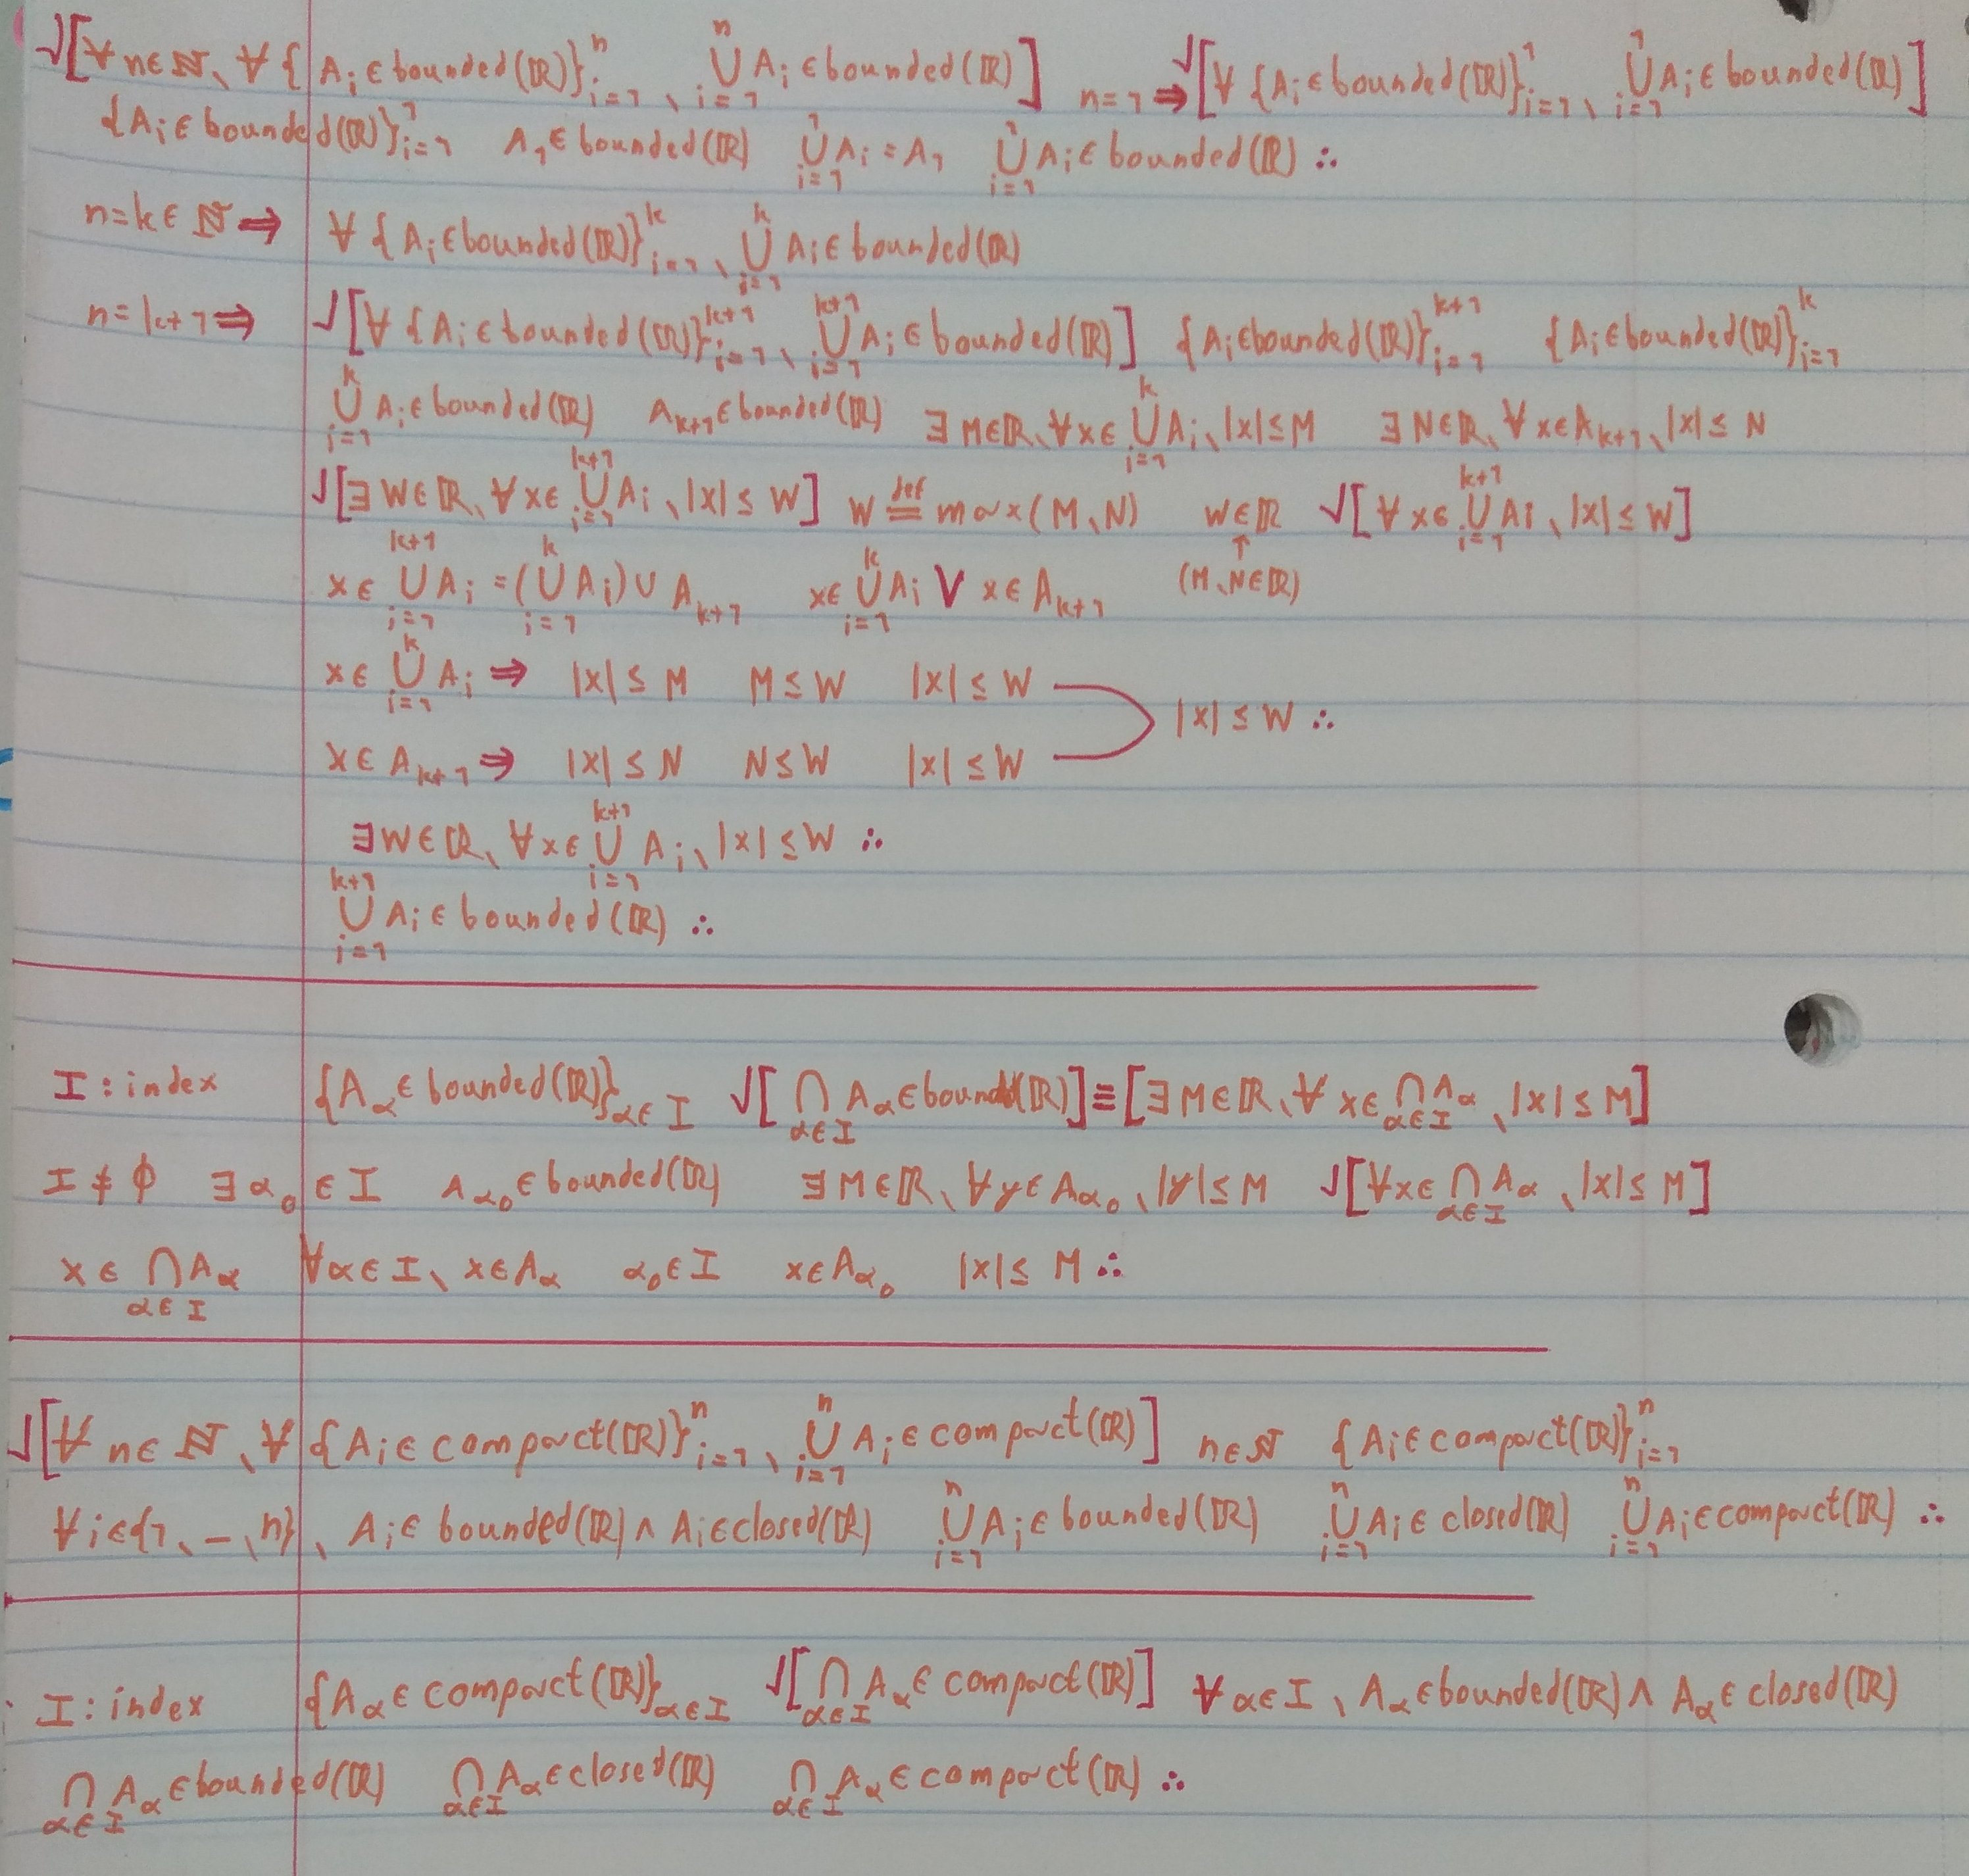 √[∀ n∈ℕ、∀ {A_i ∈ bounded(ℝ)}_{i=1}^n 、⋃_{i=1}^n A_i ∈ bounded(ℝ)] n=1 ⇒ √[∀ {A_i ∈ bounded(ℝ)}_{i=1}^1 、⋃_{i=1}^1 A_i ∈ bounded(ℝ)]
{A_i ∈ bounded(ℝ)}_{i=1}^1 A_1 ∈ bounded(ℝ) ⋃_{i=1}^1 A_i = A_1 ⋃_{i=1}^1 A_i ∈ bounded(ℝ) ∴
n=k∈ℕ ⇒ ∀ {A_i ∈ bounded(ℝ)}_{i=1}^k 、⋃_{i=1}^k A_i ∈ bounded(ℝ)
n=k+1 ⇒ √[∀ {A_i ∈ bounded(ℝ)}_{i=1}^{k+1} 、⋃_{i=1}^{k+1} A_i ∈ bounded(ℝ)] {A_i ∈ bounded(ℝ)}_{i=1}^{k+1} {A_i ∈ bounded(ℝ)}_{i=1}^k
⋃_{i=1}^k A_i ∈ bounded(ℝ) A_{k+1} ∈ bounded(ℝ) ∃ M∈ℝ、∀ x∈ ⋃_{i=1}^k A_i 、|x| ≤ M ∃ N∈ℝ、∀ x∈A_{k+1} 、|x| ≤ N
√[∃ W∈ℝ、∀ x∈ ⋃_{i=1}^{k+1} A_i 、|x| ≤ W] W ≝ max(M、N) W∈ℝ √[∀ x∈ ⋃_{i=1}^{k+1} A_i 、|x| ≤ W]
↑
x∈ ⋃_{i=1}^{k+1} A_i = (⋃_{i=1}^k A_i) ∪ A_{k+1} x∈ ⋃_{i=1}^k A_i ∨ x∈ A_{k+1} (M、N∈ℝ)
x∈ ⋃_{i=1}^k A_i ⇒ |x| ≤ M M ≤ W |x| ≤ W
|x| ≤ W ∴
x∈ A_{k+1} ⇒ |x| ≤ N N ≤ W |x| ≤ W
∃ W∈ℝ、∀ x∈ ⋃_{i=1}^{k+1} A_i 、|x| ≤ W ∴
⋃_{i=1}^{k+1} A_i ∈ bounded(ℝ) ∴
I : index {A_α ∈ bounded(ℝ)}_{α∈I} √[⋂_{α∈I} A_α ∈ bounded(ℝ)] ≡ [∃ M∈ℝ、∀ x∈ ⋂_{α∈I} A_α 、|x| ≤ M]
I ≠ ϕ ∃ α_0 ∈ I A_{α_0} ∈ bounded(ℝ) ∃ M∈ℝ、∀ y∈A_{α_0} 、|y| ≤ M √[∀ x∈ ⋂_{α∈I} A_α 、|x| ≤ M]
x∈ ⋂_{α∈I} A_α ∀ α∈I、x∈A_α α_0∈I x∈A_{α_0} |x| ≤ M ∴
√[∀ n∈ℕ、∀ {A_i ∈ compact(ℝ)}_{i=1}^n 、⋃_{i=1}^n A_i ∈ compact(ℝ)] n∈ℕ {A_i ∈ compact(ℝ)}_{i=1}^n
∀ i∈{1、…、n}、A_i ∈ bounded(ℝ) ∧ A_i ∈ closed(ℝ) ⋃_{i=1}^n A_i ∈ bounded(ℝ) ⋃_{i=1}^n A_i ∈ closed(ℝ) ⋃_{i=1}^n A_i ∈ compact(ℝ) ∴
I : index {A_α ∈ compact(ℝ)}_{α∈I} √[⋂_{α∈I} A_α ∈ compact(ℝ)] ∀ α∈I、A_α ∈ bounded(ℝ) ∧ A_α ∈ closed(ℝ)
⋂_{α∈I} A_α ∈ bounded(ℝ) ⋂_{α∈I} A_α ∈ closed(ℝ) ⋂_{α∈I} A_α ∈ compact(ℝ) ∴